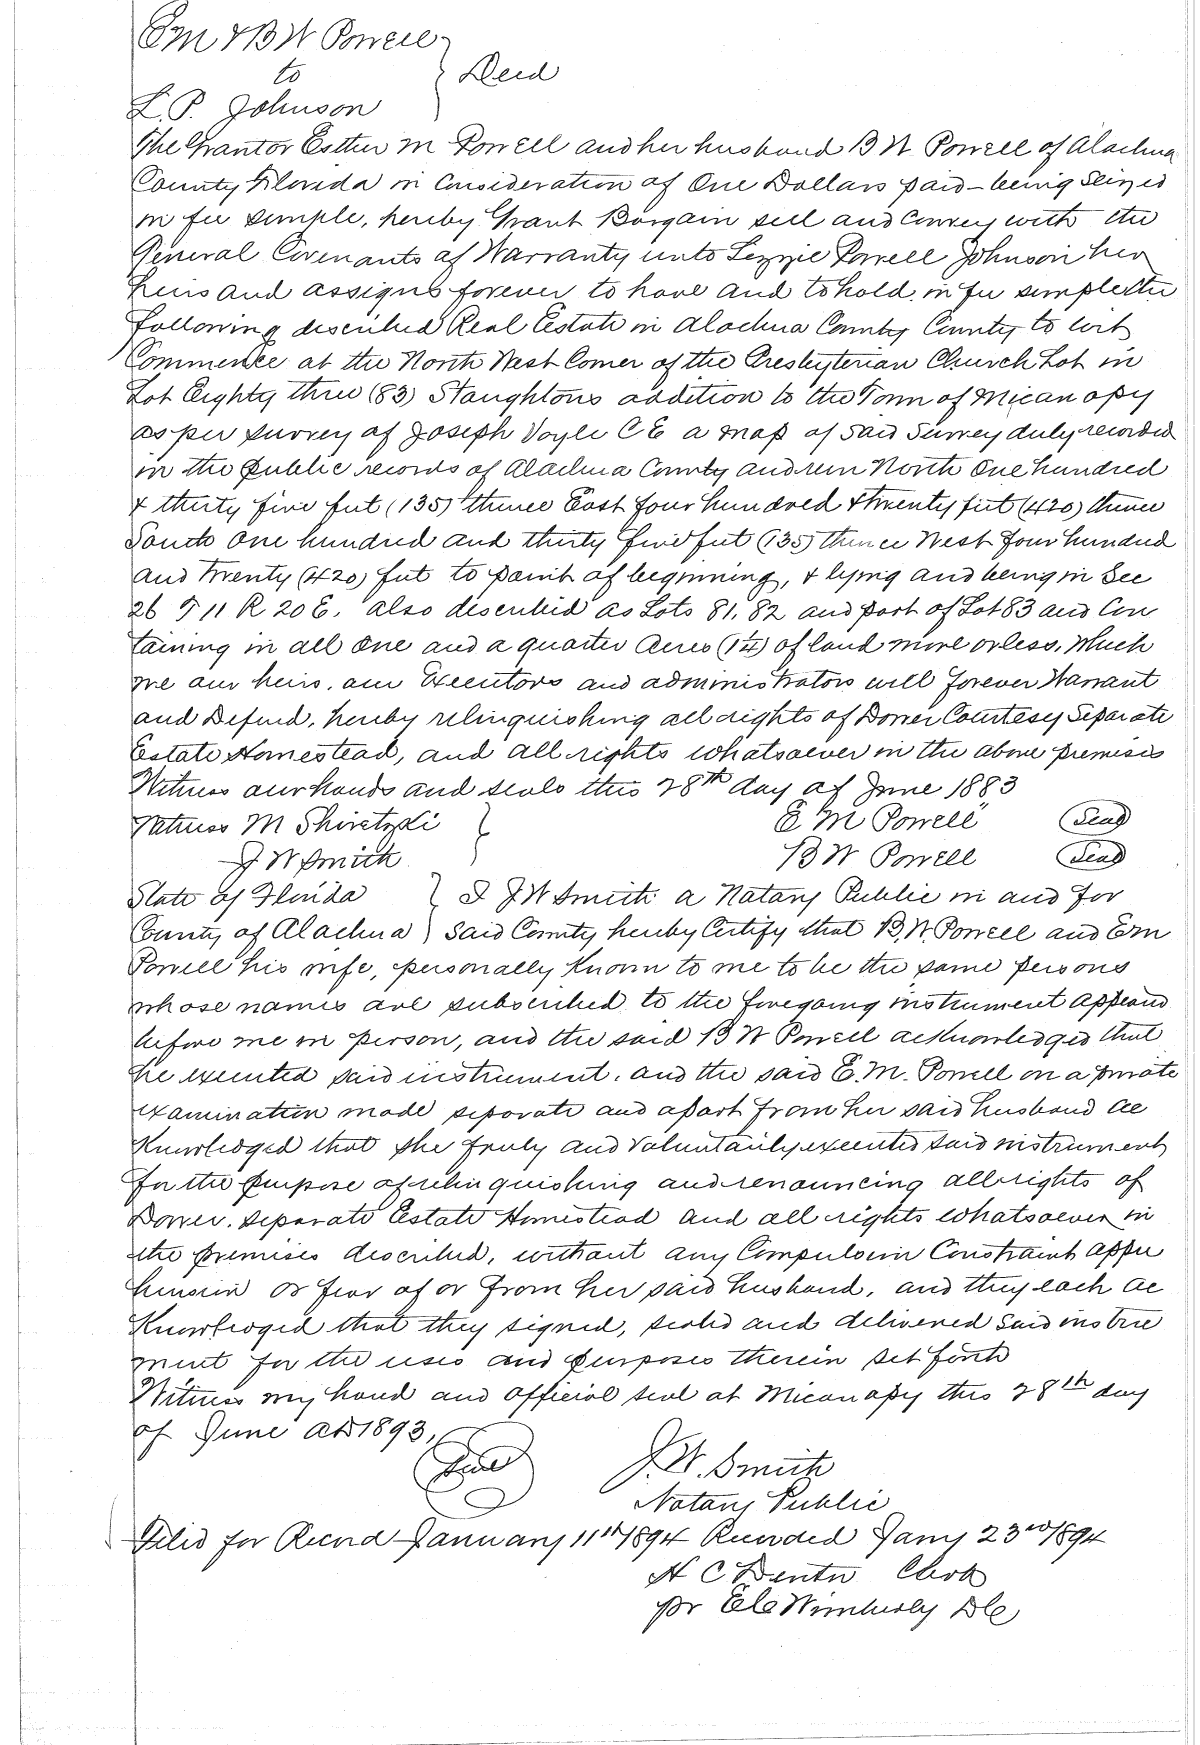 E M & B W Powell
to } Deed
L. P. Johnson
The Grantor Esther M Powell and her husband B W Powell of Alachua
County Florida in Consideration of One Dollars paid - being Seized
in fee simple, hereby Grant Bargain sell and Convey with the
General Covenants of Warranty unto Lizzie Powell Johnson her
heirs and assigns forever to have and to hold in fee simple the
following described Real Estate in Alachua County County to wit
Commence at the North West Corner of the Presbyterian Church Lot in
Lot Eighty three (83) Staughtons addition to the Town of Micanopy
as per survey of Joseph Voyle C E a map of said Survey duly recorded
in the public records of Alachua County and run North One hundred
& thirty five feet (135) thence East four hundred & twenty feet (420) thence
South One hundred and thirty five feet (135) thence West four hundred
and twenty (420) feet to point of beginning, & lying and being in Sec
26 T 11 R 20 E. also described as Lots 81, 82 and part of Lot 83 and Con
taining in all One and a quarter Acres (1¼) of land more or less, which
we our heirs, our Executors and administrators will forever Warrant
and Defend, hereby relinquishing all rights of Dower Courtesy Separate
Estate Homestead, and all rights whatsoever in the above premises
Witness our hands and seals this 28th day of June 1883
Witness M Shiretzki } E M Powell (Seal)
J W Smith B W Powell (Seal)
State of Florida } I J W Smith a Notary Public in and for
County of Alachua } said County hereby Certify that B, W Powell and E m
Powell his wife, personally known to me to be the same persons
whose names are subscribed to the foregoing instrument appeared
before me in person, and the said B W Powell acknowledged that
he executed said instrument, and the said E. M. Powell on a private
examination made separate and apart from her said husband ac
Knowledged that she fruly and voluntarily executed said instrument
for the purpose of relinquishing and renouncing all rights of
Dower, separate Estate Homestead and all rights whatsoever in
the premises described, without any Compulsion Constraint appre
hension or fear of or from her said husband, and they each ac
Knowledged that they signed, sealed and delivered said instru
ment for the uses and purposes therein set forth
Witness my hand and official seal at Micanopy this 28th day
of June AD 1893,
(Seal) J. W. Smith
Notary Public
Filed for Record January 11th 1894 Recorded Jany 23rd 1894
H C Denton Clerk
pr Wimberly DC